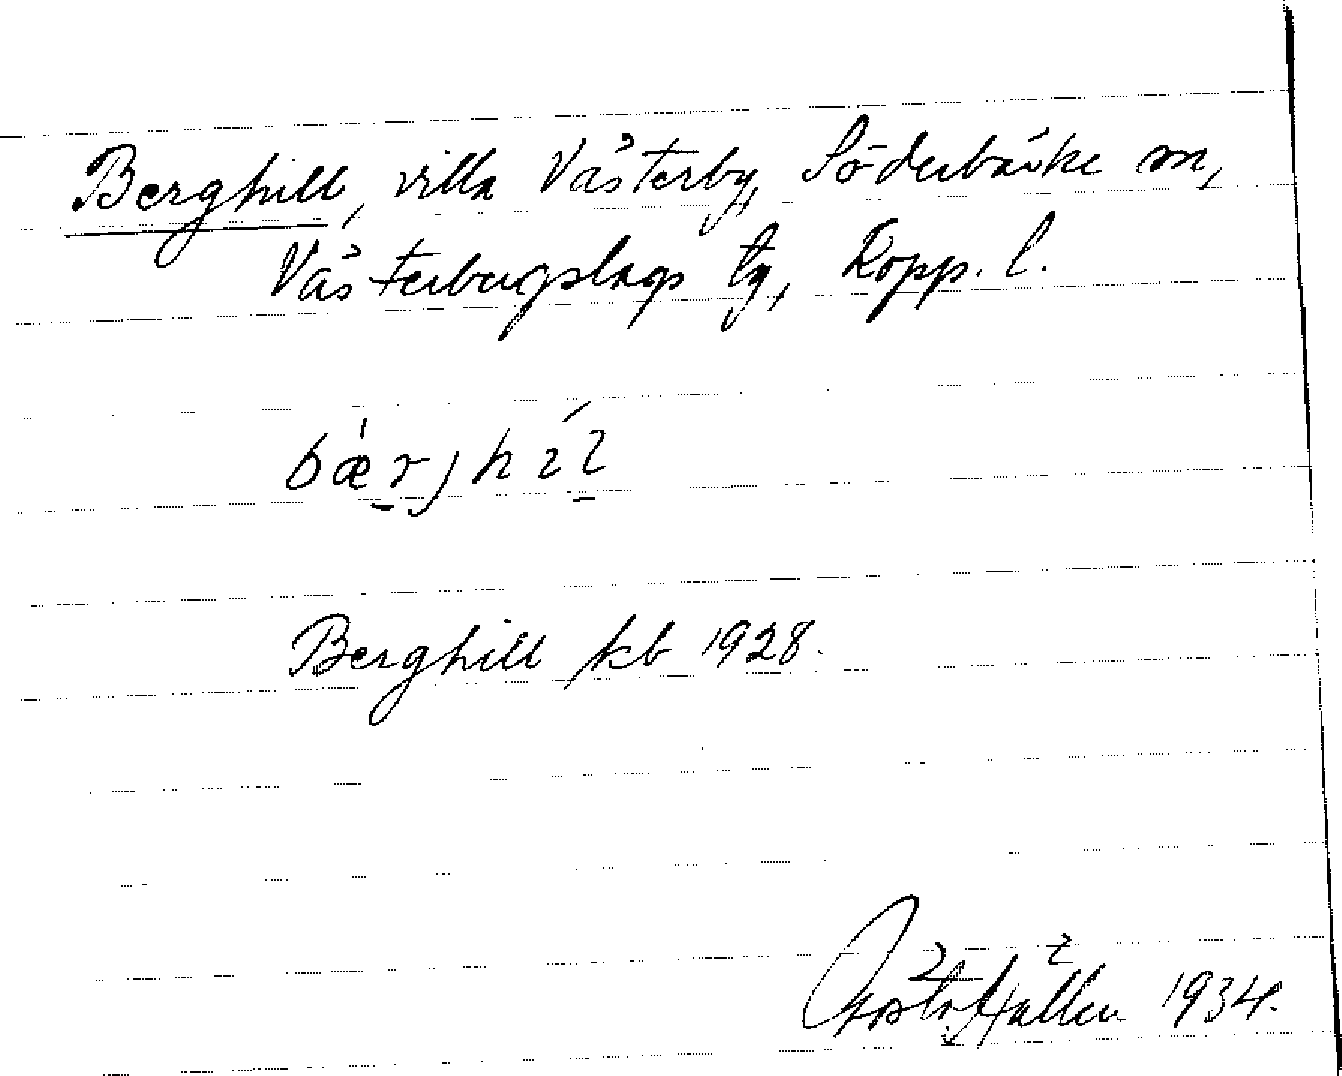 Berghill, villa Västerby, Söderbärke sn,
Västerbergslags tg, Kopp. l.
bæ̀rjhíl
Berghill kb 1928.
Gösta Hallén 1934.